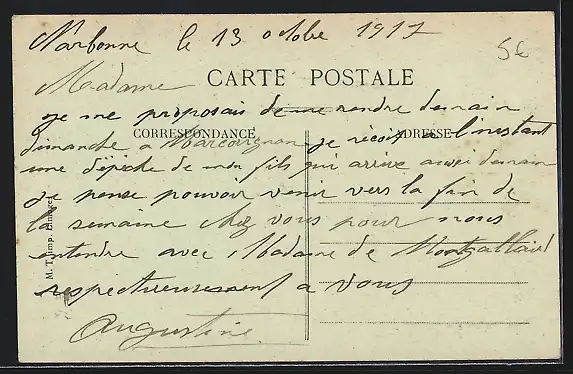 Narbonne le 13 octobre 1917
5€
Madame
CARTE POSTALE
je me proposais de me rendre demain
CORRESPONDANCE
ADRESSE
dimanche a Marcorignan je reçois a l'instant
une dépêche de mon fils qui arrive aussi demain
je pense pouvoir venir vers la fin de
la semaine chez vous pour nous
entendre avec Madame de Montgallard
respectueusement a vous
Augustine
M. T. Imp. Limoges